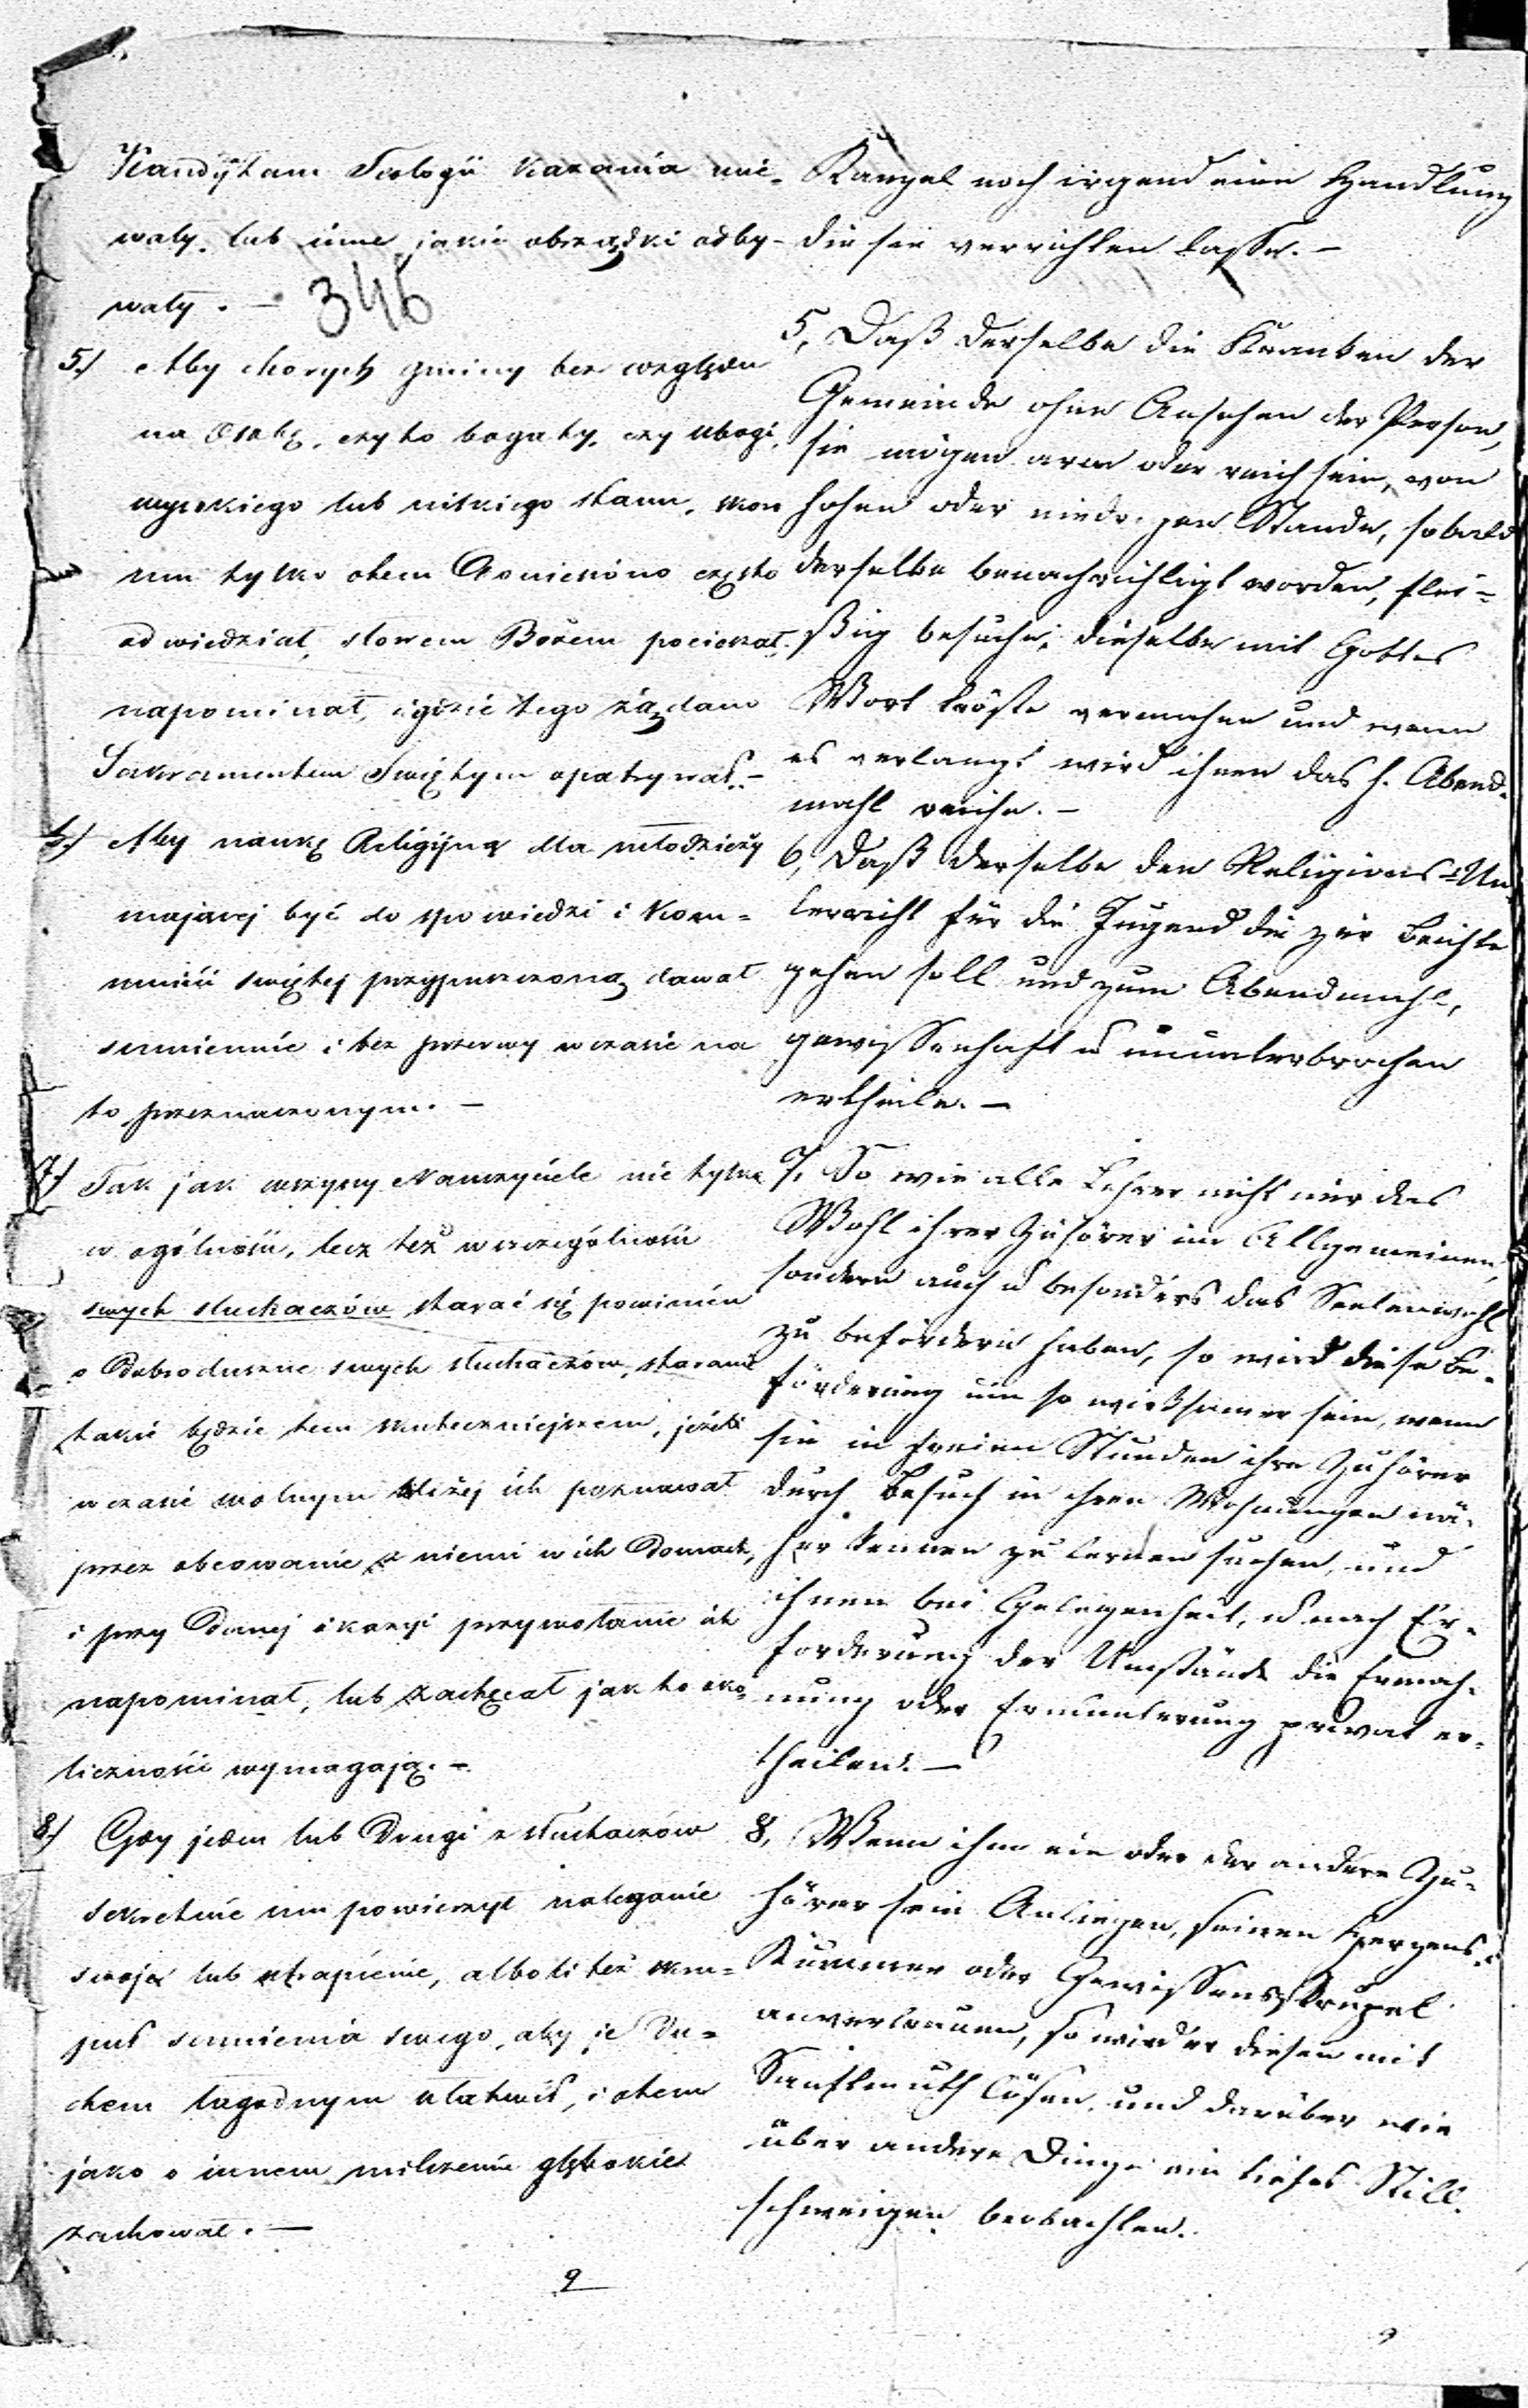 Kandydatom Teologii kazania mie-
wały, lub inne jakie obrządki odby-
wały. —
346
5.) Aby chorych gminy bez względu
na Osobę, czy to bogaty, czy ubogi,
wysokiego lub niskiego stanu, skoro
mu tylko otem doniesiono często
odwiedział, słowem Bożem pocieszał,
napominał, i gdzie tego żądano
Sakramentem Swiętym opatrywał. —
6.) Aby naukę Religijną dla młodzieży
mającej być do spowiedzi i Kom-
munii swiętej przypuszczoną dawał
sumiennie i bez przerwy w czasie na
to przeznaczonym. —
7.) Tak jak wszyscy Nauczyciele nie tylko
w ogólności, lecz też w szczególności
swych słuchaczów starać się powinien
o Dobro duszne swych słuchaczów, staranie
takie będzie tem skuteczniejszem, jeżeli
w czasie wolnym bliżej ich poznawał
przez obcowanie z niemi w ich Domach,
i przy Danej okazyi przywołanie ich
napominał, lub zachęcał jak to oko-
liczności wymagają. —
8.) Gdy jeden lub Drugi z słuchaczów
sekretnie mu powierzył naleganie
swoje lub utrapienie, albo li też skru-
puł sumienia swego, aby je Du-
chem łagodnym ułatwił, i otem
jako o innem milczenie głębokie
zachował. —
9
Kanzel noch irgend eine Handlung
die sie verrichten lasse. —
5, Daß derselbe die Kranken der
Gemeinde ohne Ansehen der Person,
sie mögen arm oder reich sein, von
hohen oder niedrigen Stande, sobald
derselbe benachrichtigt worden, flei-
ßig besuche, dieselben mit Gottes
Wort tröste vermahne und wenn
es verlangt wird ihnen das h. Abend-
mahl reiche. —
6, Daß derselbe den Religions-Un-
terricht für die Jugend die zur Beichte
gehen soll und zum Abendmahl,
gewissenhaft u ununterbrochen
ertheile. —
7, So wie alle Lehrer nicht nur das
Wohl ihrer Zuhörer im Allgemeinen,
sondern auch u besonders das Seelenwohl
zu befördern haben, so wird diese Be-
förderung um so wirksamer sein, wenn
sie in freien Stunden ihre Zuhörer
durch Besuch in ihren Wohnungen nä-
her kennen zu lernen suchen, und
ihnen bei Gelegenheit, u nach Er-
forderung der Umstände die Ermah-
nung oder Ermunterung privat er-
theilen. —
8, Wenn ihm ein oder der andere Zu-
hörer sein Anliegen, seinen Herzens-
Kummer oder Gewissensskrupel
anvertrauen, so wird er diesen mit
Sanftmuth lösen, und darüber wie
über andere Dinge ein tiefes Still-
schweigen beobachten.